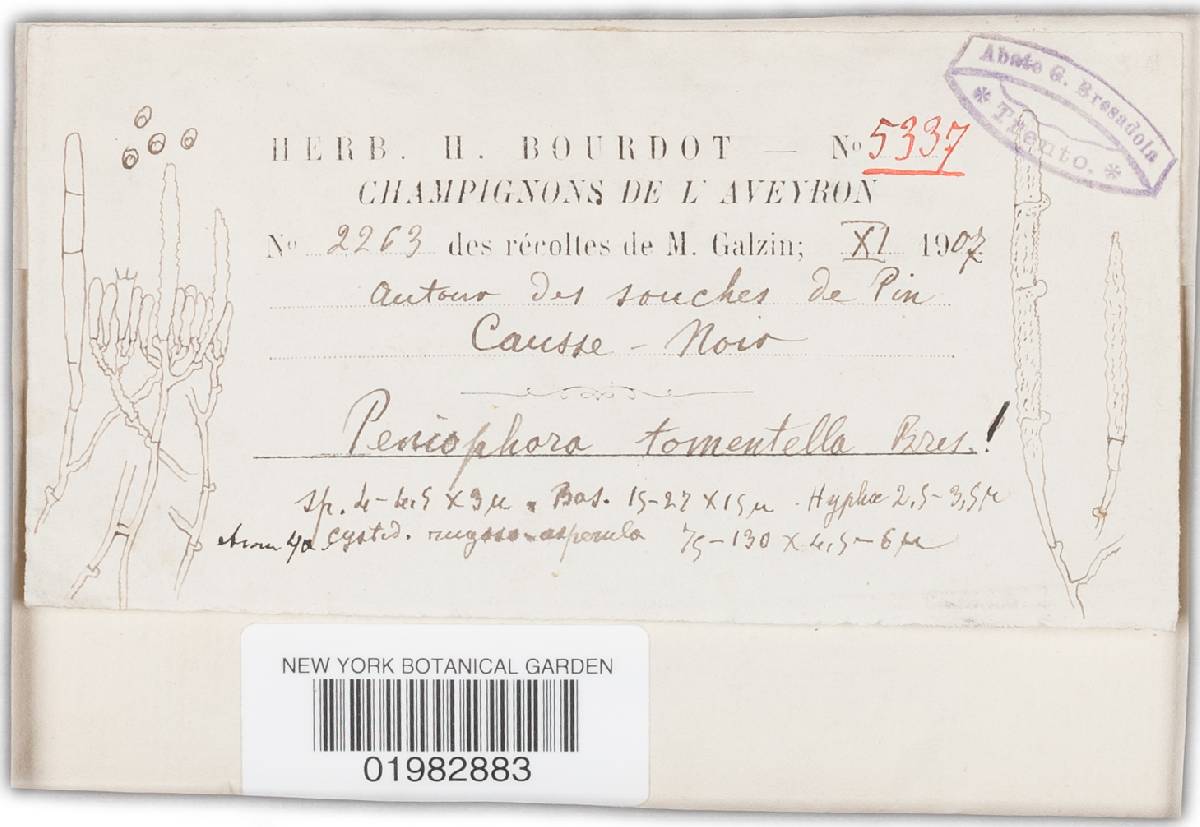 Abate G. Bresadola
* Trento. *
HERB. H. BOURDOT — No 5337
CHAMPIGNONS DE L'AVEYRON
No 2263 des récoltes de M. Galzin; XI 1907
autour des souches de Pin
Causse-Noir
Peniophora tomentella Bres.!
Sp. 4-4,5 × 3 µ. Bas. 15-27 × 15 µ. Hyphæ 2,5-3,5 µ
cystid. rugoso-asperula 75-130 × 4,5-6 µ
NEW YORK BOTANICAL GARDEN
01982883